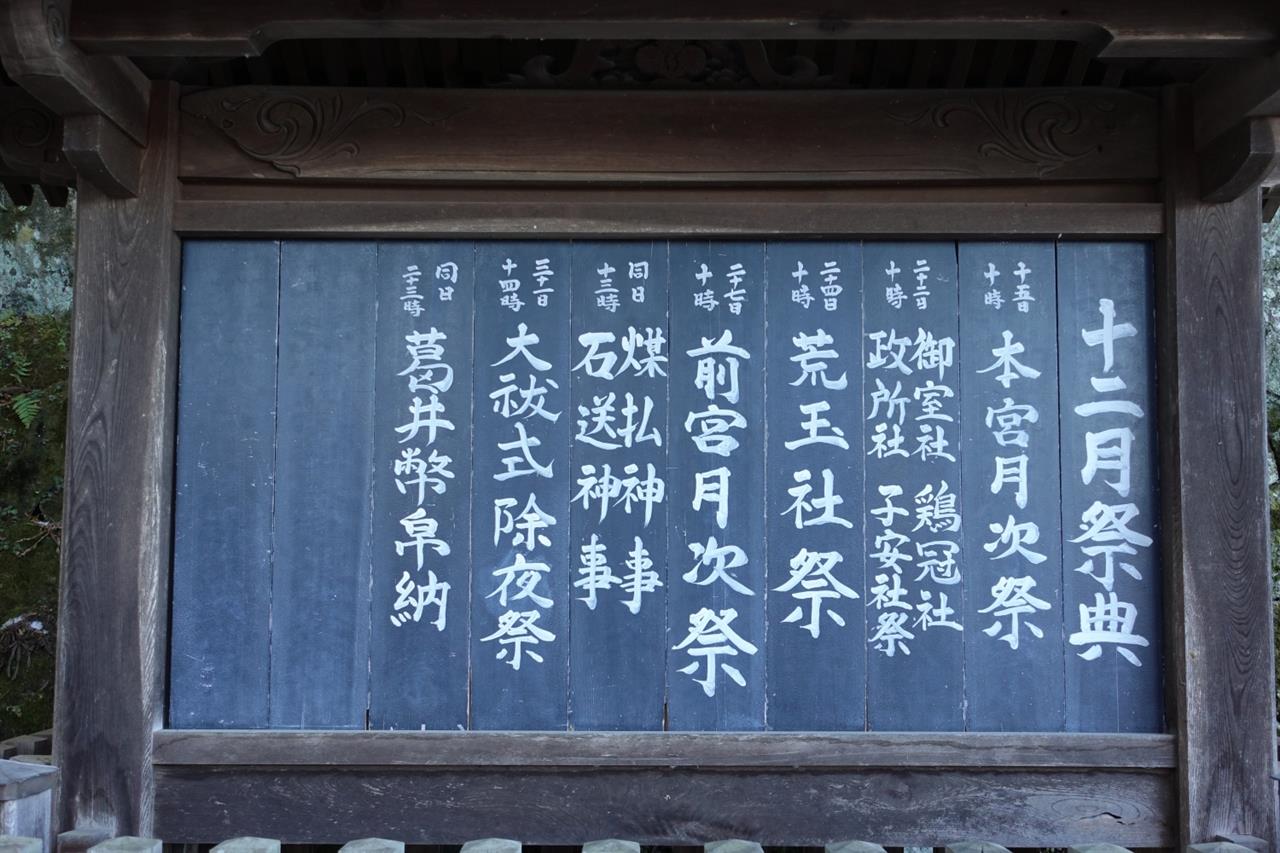 十二月祭典
十五日
十時
本宮月次祭
二十二日
十時
御室社 鶏冠社
政所社 子安社祭
二十四日
十時
荒玉社祭
二十七日
十時
前宮月次祭
同日
十三時
煤払神事
石送神事
三十一日
十四時
大祓式除夜祭
同日
二十三時
葛井幣帛納